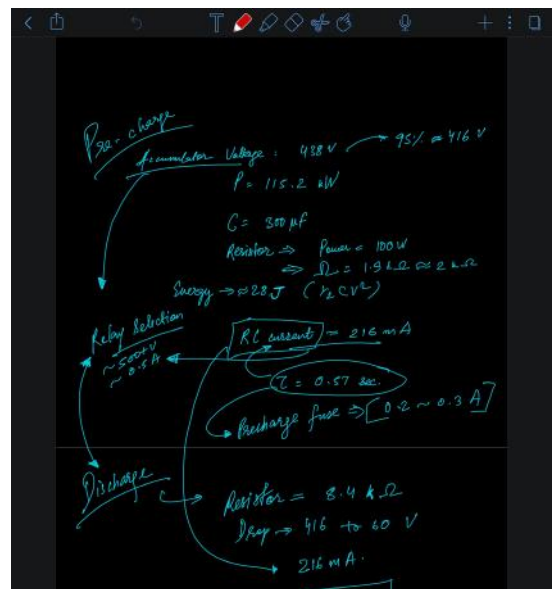 Pre-charge
Accumulator Voltage : 438 V → 95% ≈ 416 V
P = 115.2 kW
C = 300 μF
Resistor ⇒ Power = 100 W
⇔ Ω = 1.9 k Ω ≈ 2 k Ω
Energy → ≈ 28 J (½ CV²)
Relay Selection
~ 500+ V
~ 0.5 A
RC current = 216 mA
τ = 0.57 sec.
Precharge fuse ⇒ [0.2 ~ 0.3 A]
Discharge
Resistor = 8.4 k Ω
Drop → 416 to 60 V
216 mA.